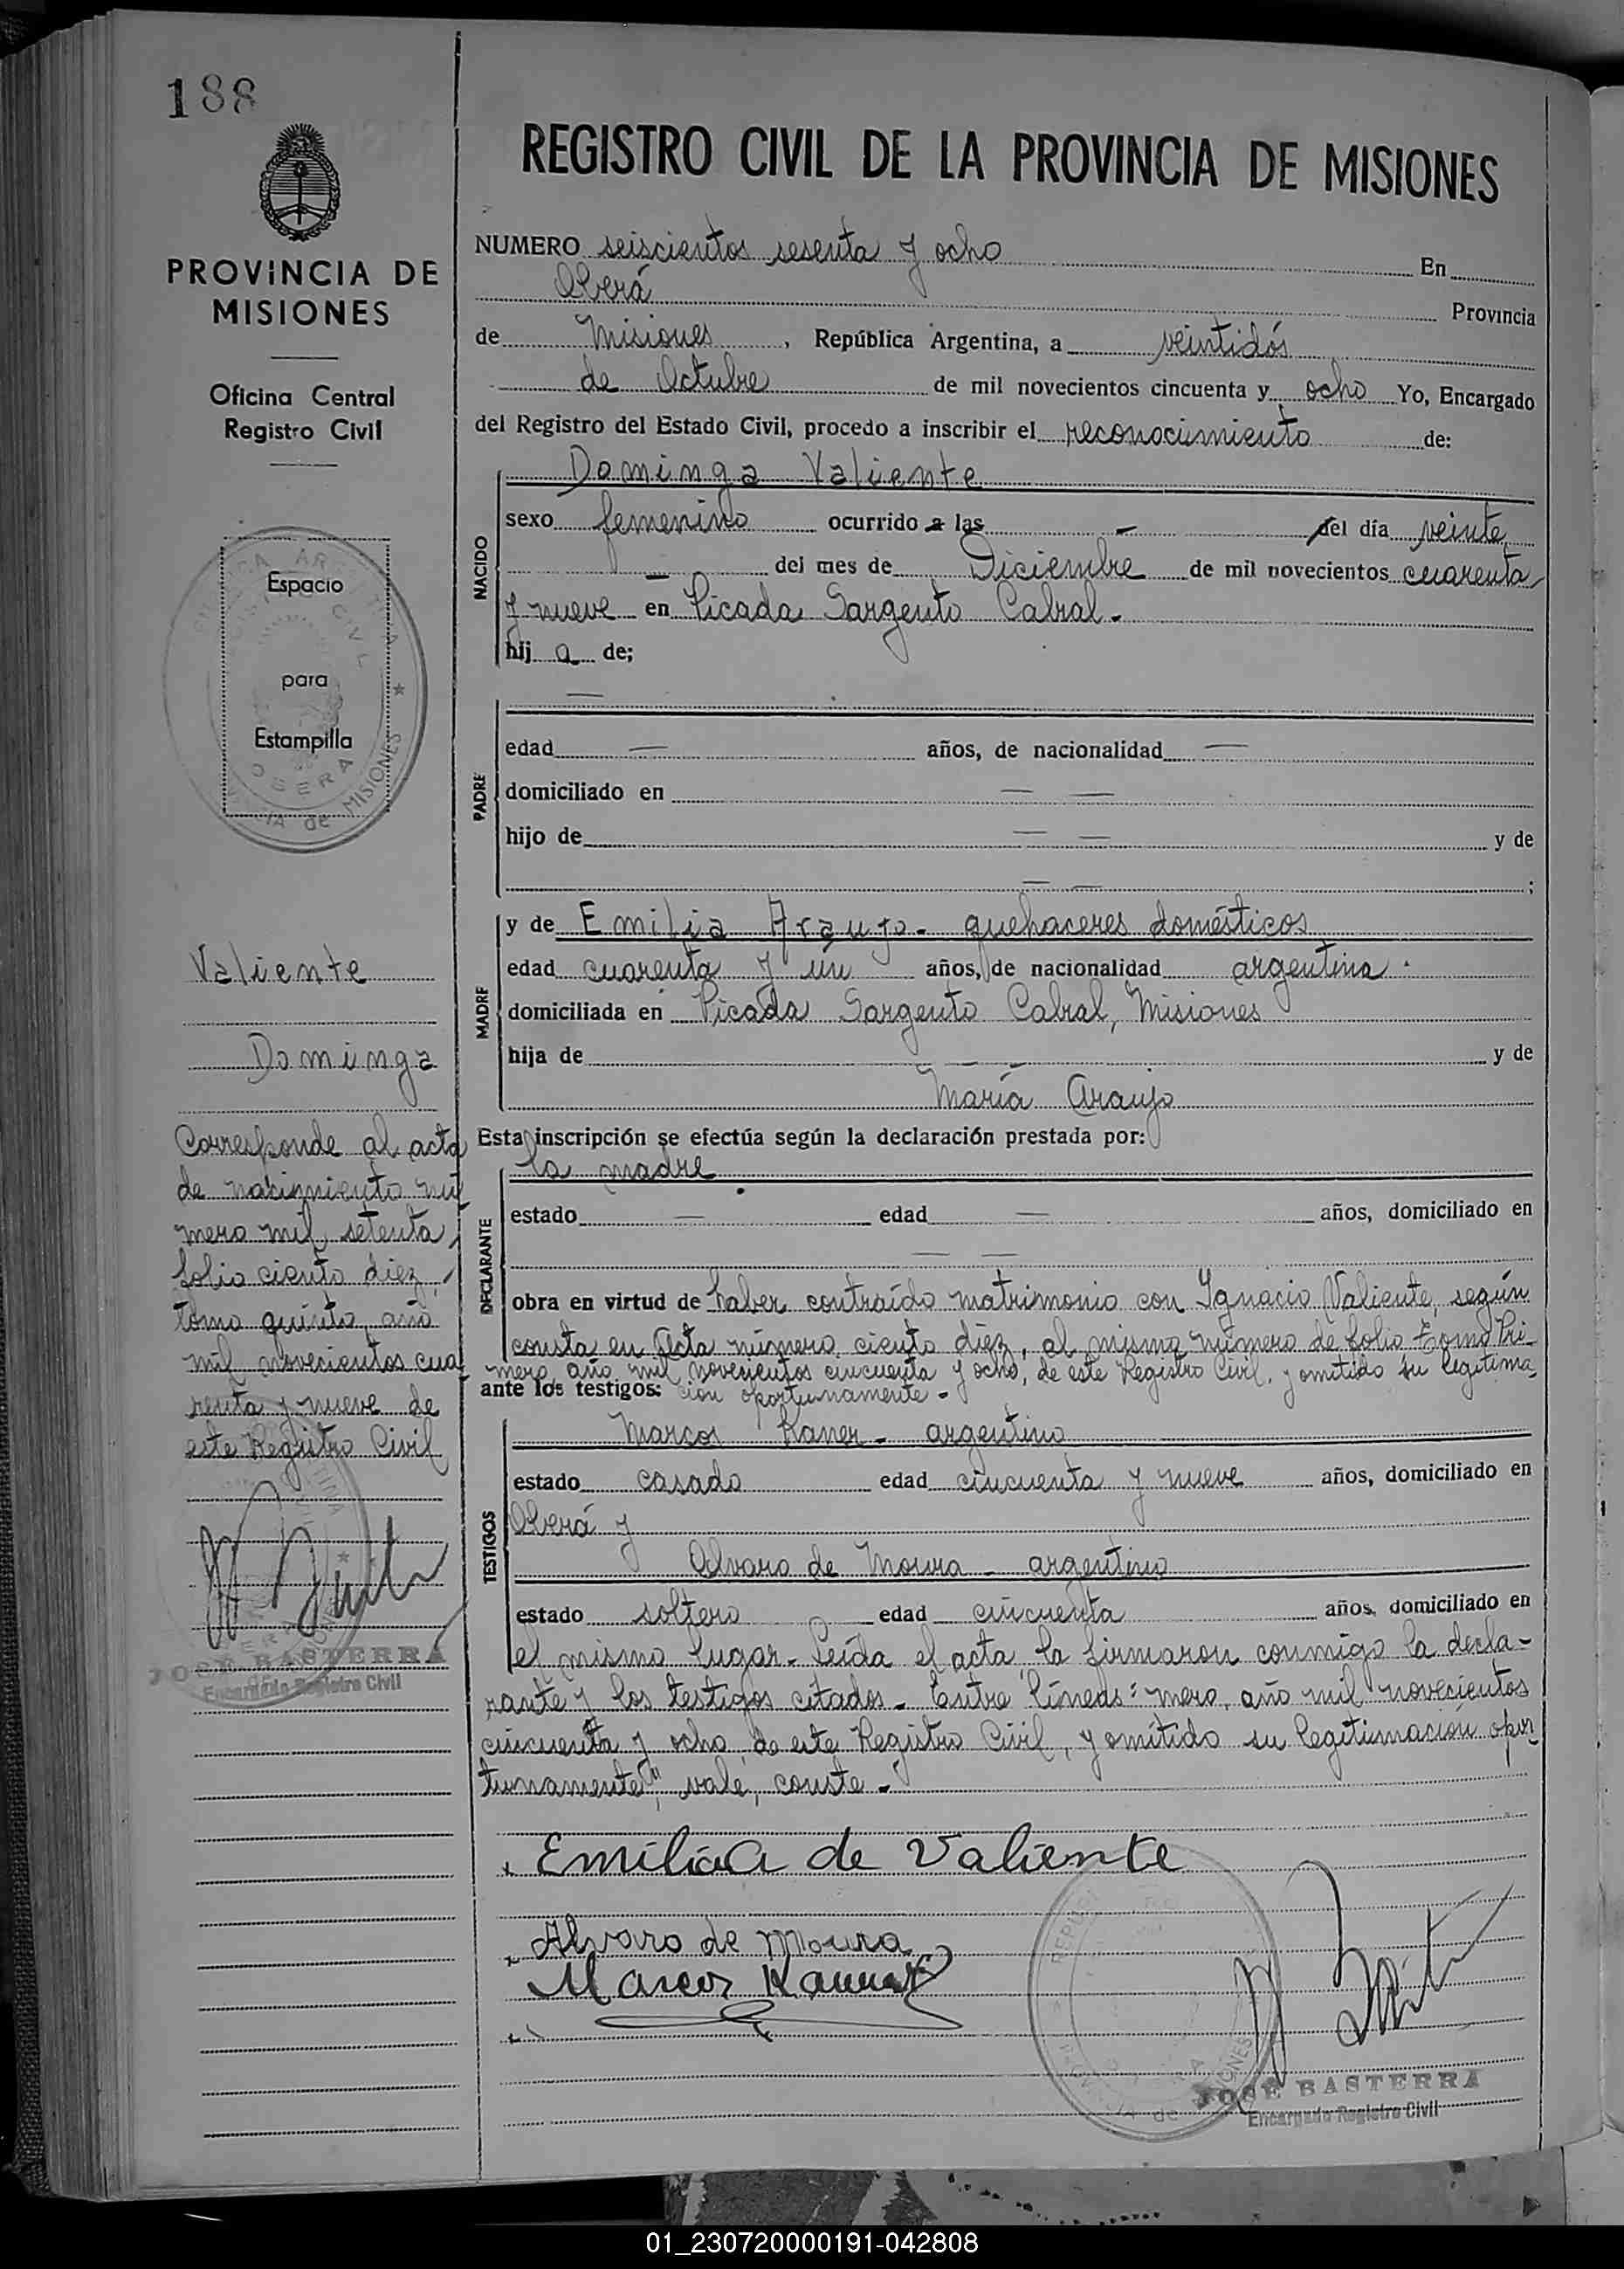 188
PROVINCIA DE
MISIONES
Oficina Central
Registro Civil
Espacio
para
Estampilla
Valiente
Dominga
Corresponde al acta
de nacimiento nú
mero mil setenta,
folio ciento diez,
tomo quinto año
mil novecientos cua
renta y nueve de
este Registro Civil
JOSÉ BASTERRA
Encargado Registro Civil
REGISTRO CIVIL DE LA PROVINCIA DE MISIONES
NUMERO seiscientos sesenta y ocho En
Oberá Provincia
de Misiones, República Argentina, a veintidós
de Octubre de mil novecientos cincuenta y ocho Yo, Encargado
del Registro del Estado Civil, procedo a inscribir el reconocimiento de:
NACIDO
Dominga Valiente
sexo femenino ocurrido a las - del día veinte
— del mes de Diciembre de mil novecientos cuarenta
y nueve en Picada Sargento Cabral.
hij a de;
PADRE
—
edad — años, de nacionalidad —
domiciliado en — —
hijo de — — y de
— — ;
MADRE
y de Emilia Araujo - quehaceres domésticos
edad cuarenta y un años, de nacionalidad argentina.
domiciliada en Picada Sargento Cabral, Misiones
hija de — — y de
María Araujo
Esta inscripción se efectúa según la declaración prestada por:
DECLARANTE
la madre
estado — edad — años, domiciliado en
— —
obra en virtud de haber contraído matrimonio con Ignacio Valiente, según
consta en Acta número ciento diez, al mismo número de folio Tomo Pri-
mero, año mil novecientos cincuenta y ocho, de este Registro Civil, y omitido su legitima
ante los testigos: ción oportunamente -
TESTIGOS
Marcos Kaner - argentino
estado casado edad cincuenta y nueve años, domiciliado en
Oberá y
Alvaro de Moura - argentino
estado soltero edad cincuenta años, domiciliado en
el mismo lugar. Leída el acta, la firmaron conmigo la decla-
rante y los testigos citados - Entre líneas: "mero, año mil novecientos
cincuenta y ocho, de este Registro Civil, y omitido su legitimación opor
tunamente", vale, conste -
Emilia A de Valiente
Alvaro de Moura
Marcos Kaner
JOSÉ BASTERRA
Encargado Registro Civil
01_230720000191-042808